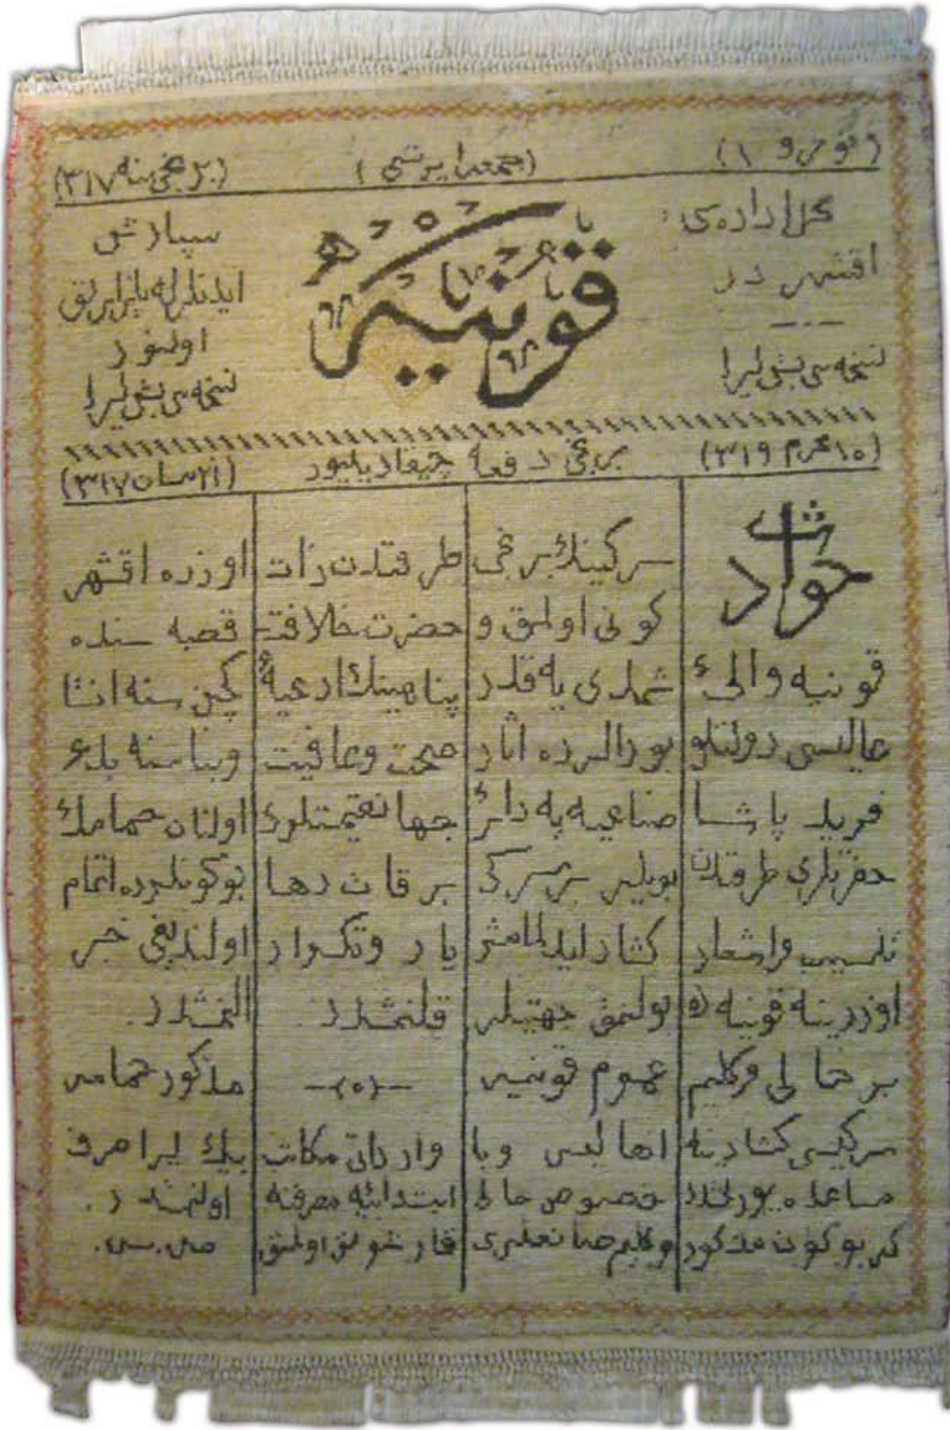 (نومرو ١)
(جمعه ایرتسی)
(برنجی سنه ٣١٧)
محل اداره‌سی:
اقشهر در
نسخه‌سی بش لیرا
قونیه
سپارش
ایدنلرله بازارلق
اولنور
نسخه‌سی بش لیرا
(١٠ محرم ٣١٩)
برنجی دفعه چیقاریلیور
(٢١ نیسان ٣١٧)
حوادث
قونیه والیٔ
عالیسی دولتلو
فرید پاشا
حضرتلری طرفندن
تنسیب واشعار
اوزرینه قونیه ده
بر خالی وکلیم
سرکیسی کشادینه
مساعده بیورلمشدر
که بو کون مذکور
سرکینك برنجی
کونی اولمق و
شمدی یه قدر
بورالرده اثار
صناعیه یه دائر
بویله بر سرکی
کشاد ایدلمامش
بولنمق جهتیله
عموم قونیه
اهالیسی وبا
خصوص خالی
وکلیم صنعتلری
طرفندن ذات
حضرت خلافت
پناهینك ادعیهٔ
صحت وعافیت
جهانقیمتلری
بر قات دها
یاد وتکرار
قلنمشدر.
—(٥)—
واردات مکاتب
ابتدائیه مصرفنه
قارشولق اولمق
اوزره اقشهر
قصبه سنده
کچن سنه انشا
وبناسنه بدء
اولنان حمامك
بوکونلرده اتمام
اولندیغی خبر
النمشدر.
مذکور حمامه
بیك لیرا صرف
اولنمشدر.